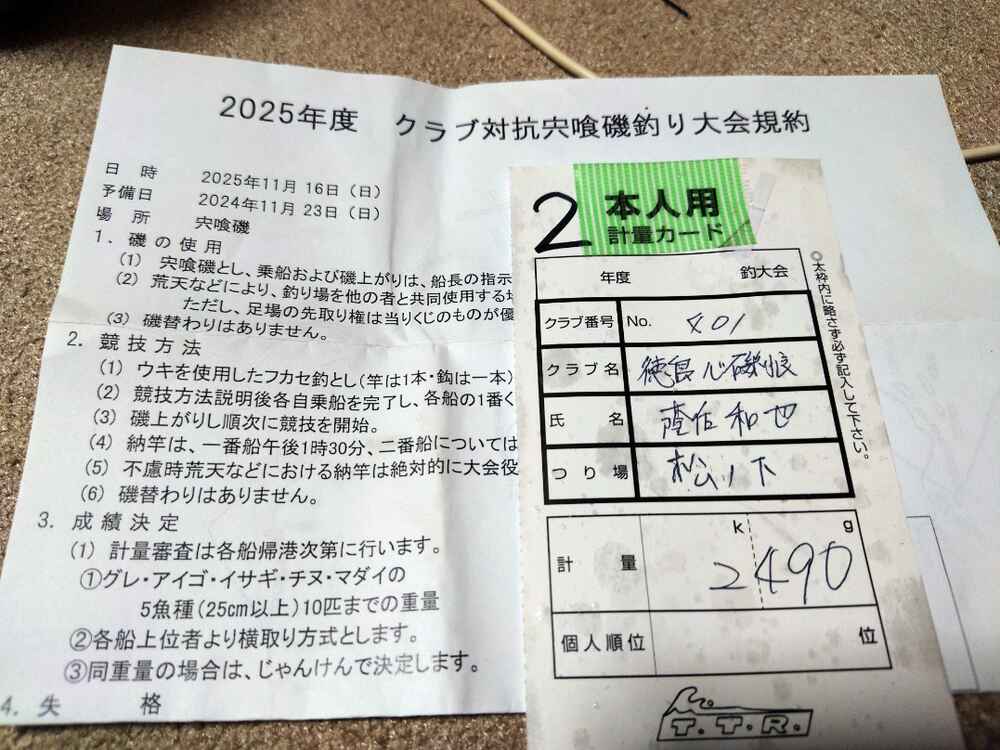 2025年度 クラブ対抗宍喰磯釣り大会規約
日 時 2025年11月16日（日）
予備日 2024年11月23日（日）
場 所 宍喰磯
1．磯の使用
(1) 宍喰磯とし、乗船および磯上がりは、船長の指示
(2) 荒天などにより、釣り場を他の者と共同使用する
ただし、足場の先取り権は当りくじのものが優
(3) 磯替わりはありません。
2．競技方法
(1) ウキを使用したフカセ釣とし（竿は1本・鈎は一本）
(2) 競技方法説明後各自乗船を完了し、各船の1番く
(3) 磯上がりし順次に競技を開始。
(4) 納竿は、一番船午後1時30分、二番船については
(5) 不慮時荒天などにおける納竿は絶対的に大会役
(6) 磯替わりはありません。
3．成績決定
(1) 計量審査は各船帰港次第に行います。
①グレ・アイゴ・イサギ・チヌ・マダイの
5魚種（25cm以上）10匹までの重量
②各船上位者より横取り方式とします。
③同重量の場合は、じゃんけんで決定します。
4．失 格
2 本人用
計量カード
年度 釣大会
クラブ番号 No. 801
クラブ名 徳島心磯狼
氏 名 佐和也
つり場 松ノ下
k g
計 量 2490
個人順位 位
◎太枠内に略さず必ず記入して下さい。
T.T.R.